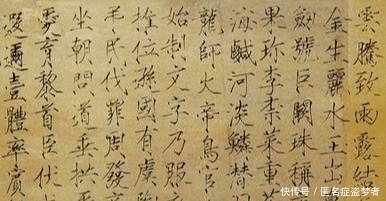 雲騰致雨露結
金生麗水玉出
劍號巨闕珠稱
果珍李柰菜重芥
海鹹河淡鱗潛羽
龍師火帝鳥官
始制文字乃服
推位遜國有虞陶
弔民伐罪周發
坐朝問道垂拱平
愛育黎首臣伏戎
遐邇壹體率賓
快传号 / 匿名症盗梦者